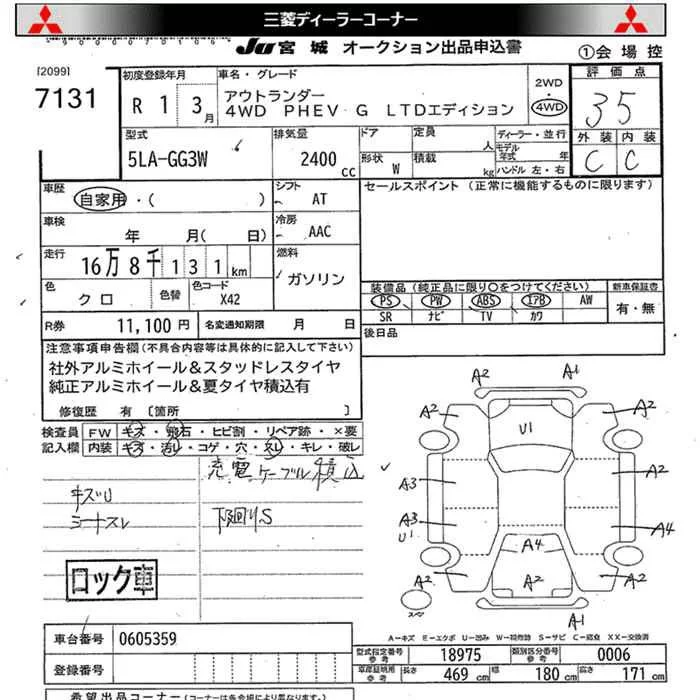 三菱ディーラーコーナー
JU 宮城 オークション出品申込書
①会場控
[2099]
7131
初度登録年月
R 1 3月
車名・グレード
アウトランダー
4WD PHEV G LTDエディション
2WD
・
4WD
評価点
3.5
外装 内装
C C
型式
5LA-GG3W
排気量
2400 cc
ドア
定員
人
形状 W
積載
kg
ディーラー・並行
モデル
年式 年
ハンドル 左・右
車歴
自家用・( )
シフト
AT
車検
年 月( 日)
冷房
AAC
走行
16万8千131km
燃料
ガソリン
色
クロ
色替
色コード
X42
セールスポイント (正常に機能するものに限ります)
装備品(純正品に限り○をつけてください)
PS PW ABS エアB AW
SR ナビ TV カワ
新車保証書
有・無
R券 11,100円
名変通知期限 月 日
後日品
注意事項申告欄(不具合内容等は具体的に記入して下さい)
社外アルミホイール&スタッドレスタイヤ
純正アルミホイール&夏タイヤ積込有
修復歴 有 [箇所 ]
検査員
記入欄
FW キズ・飛石・ヒビ割・リペア跡・×要
内装 キズ・汚レ・コゲ・穴・スレ・キレ・破レ
充電ケーブル積込
キズU
シートスレ
下廻りS
ロック車
A2
A1
A2
A2
U1
A3
A2
A3
U1
A4
A4
A2
A2
A2
A1
スペア
A-キズ E-エクボ U-凹み W-補修跡 S-サビ C-腐食 XX-交換済
車台番号 0605359
登録番号
型式指定番号
参考
18975
類別区分番号
参考
0006
車庫証明用
参考
長さ
469 cm
幅
180 cm
高さ
171 cm
希望出品コーナー(コーナーは各会場により異なります。)